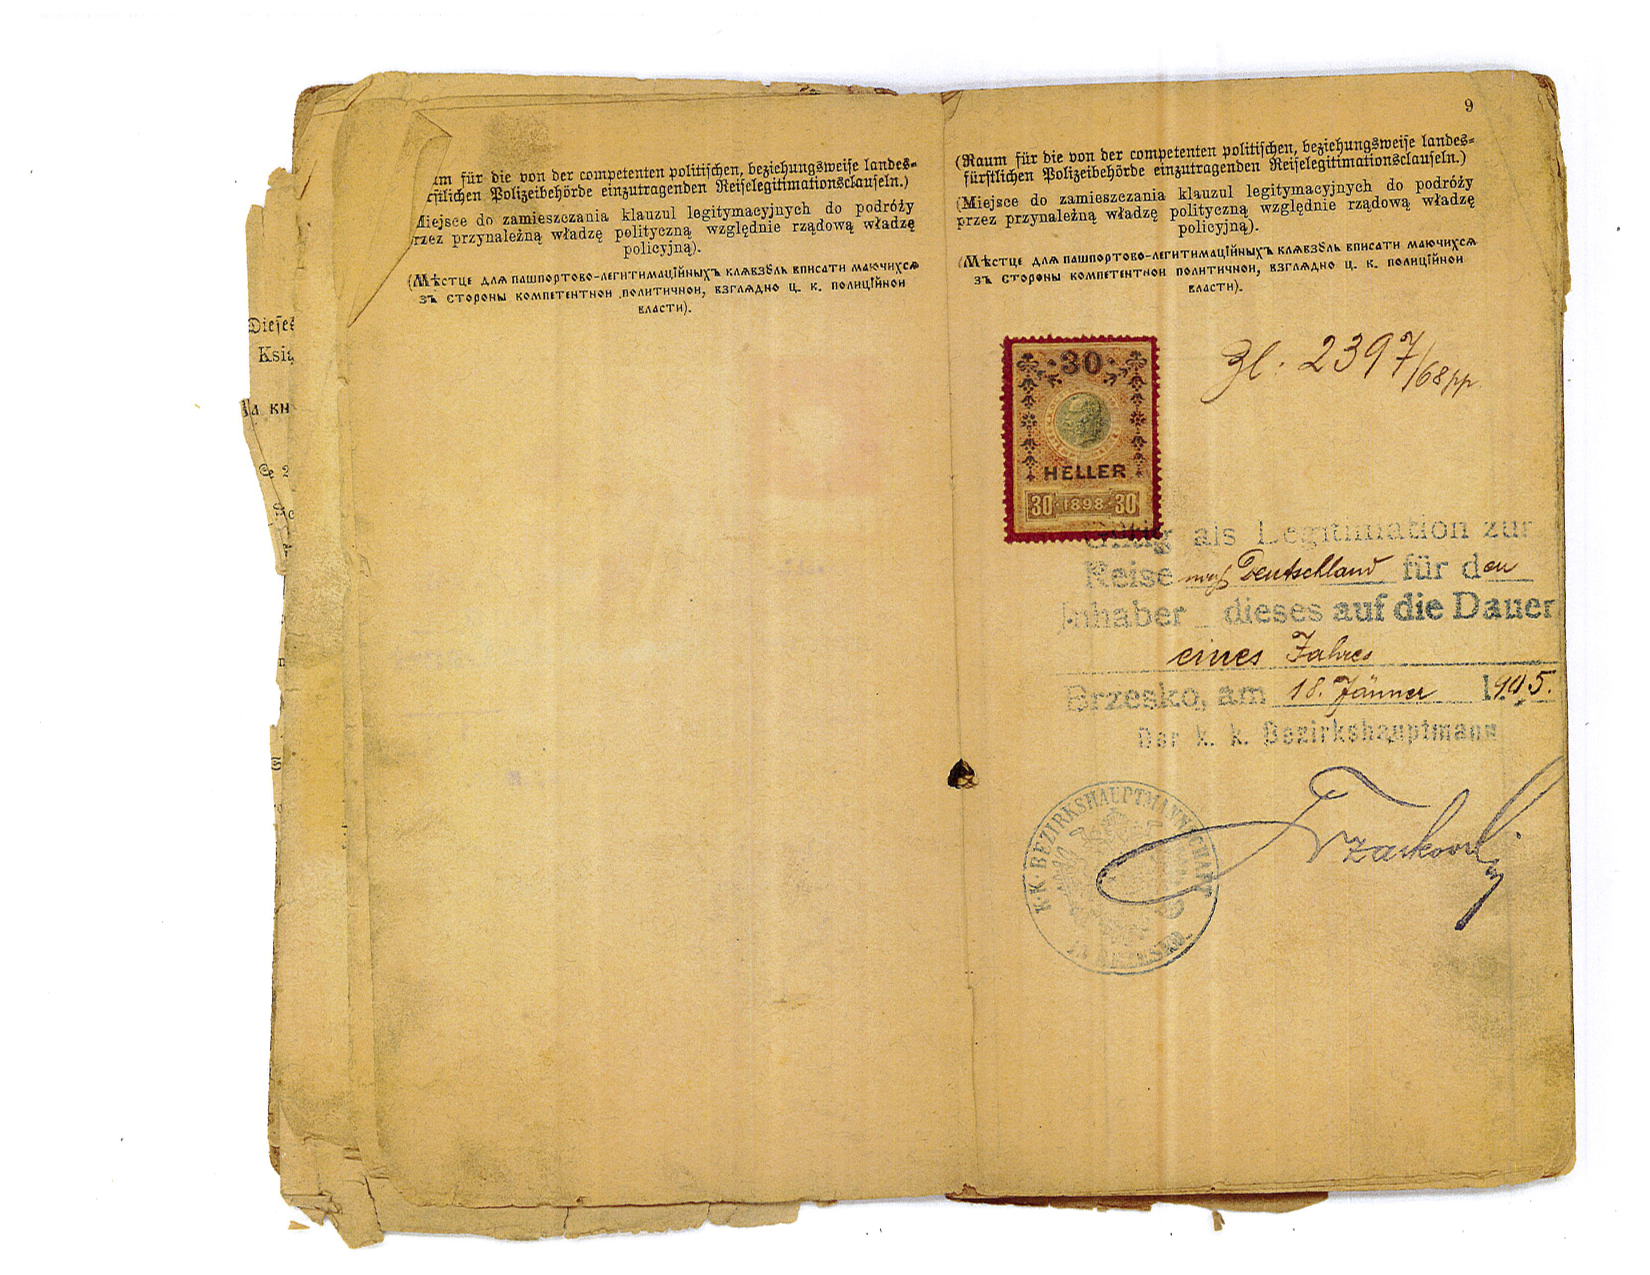 Dieses
Ksią
КН
um für die von der competenten politischen, beziehungsweise landes=
rstlichen Polizeibehörde einzutragenden Reiselegitimationsclauseln.)
Miejsce do zamieszczania klauzul legitymacyjnych do podróży
rzez przynależną władzę polityczną względnie rządową władzę
policyjną).
(Мѣстце для пашпортово-легитимаційныхъ клявзѹль вписати маючихся
зъ стороны компетентнои политичнои, взглядно ц. к. полиційнои
власти).
9
(Raum für die von der competenten politischen, beziehungsweise landes=
fürstlichen Polizeibehörde einzutragenden Reiselegitimationsclauseln.)
(Miejsce do zamieszczania klauzul legitymacyjnych do podróży
przez przynależną władzę polityczną względnie rządową władzę
policyjną).
(Мѣстце для пашпортово-легитимаційныхъ клявзѹль вписати маючихся
зъ стороны компетентнои политичнои, взглядно ц. к. полиційнои
власти).
Zl. 2397/68 pp.
30
HELLER
30 1898 30
Gültig als Legitimation zur
Reise nach Deutschland für den
Inhaber dieses auf die Dauer
eines Jahres
Brzesko, am 18. Jänner 1905.
Der k. k. Bezirkshauptmann
K. K. BEZIRKSHAUPTMANNSCHAFT